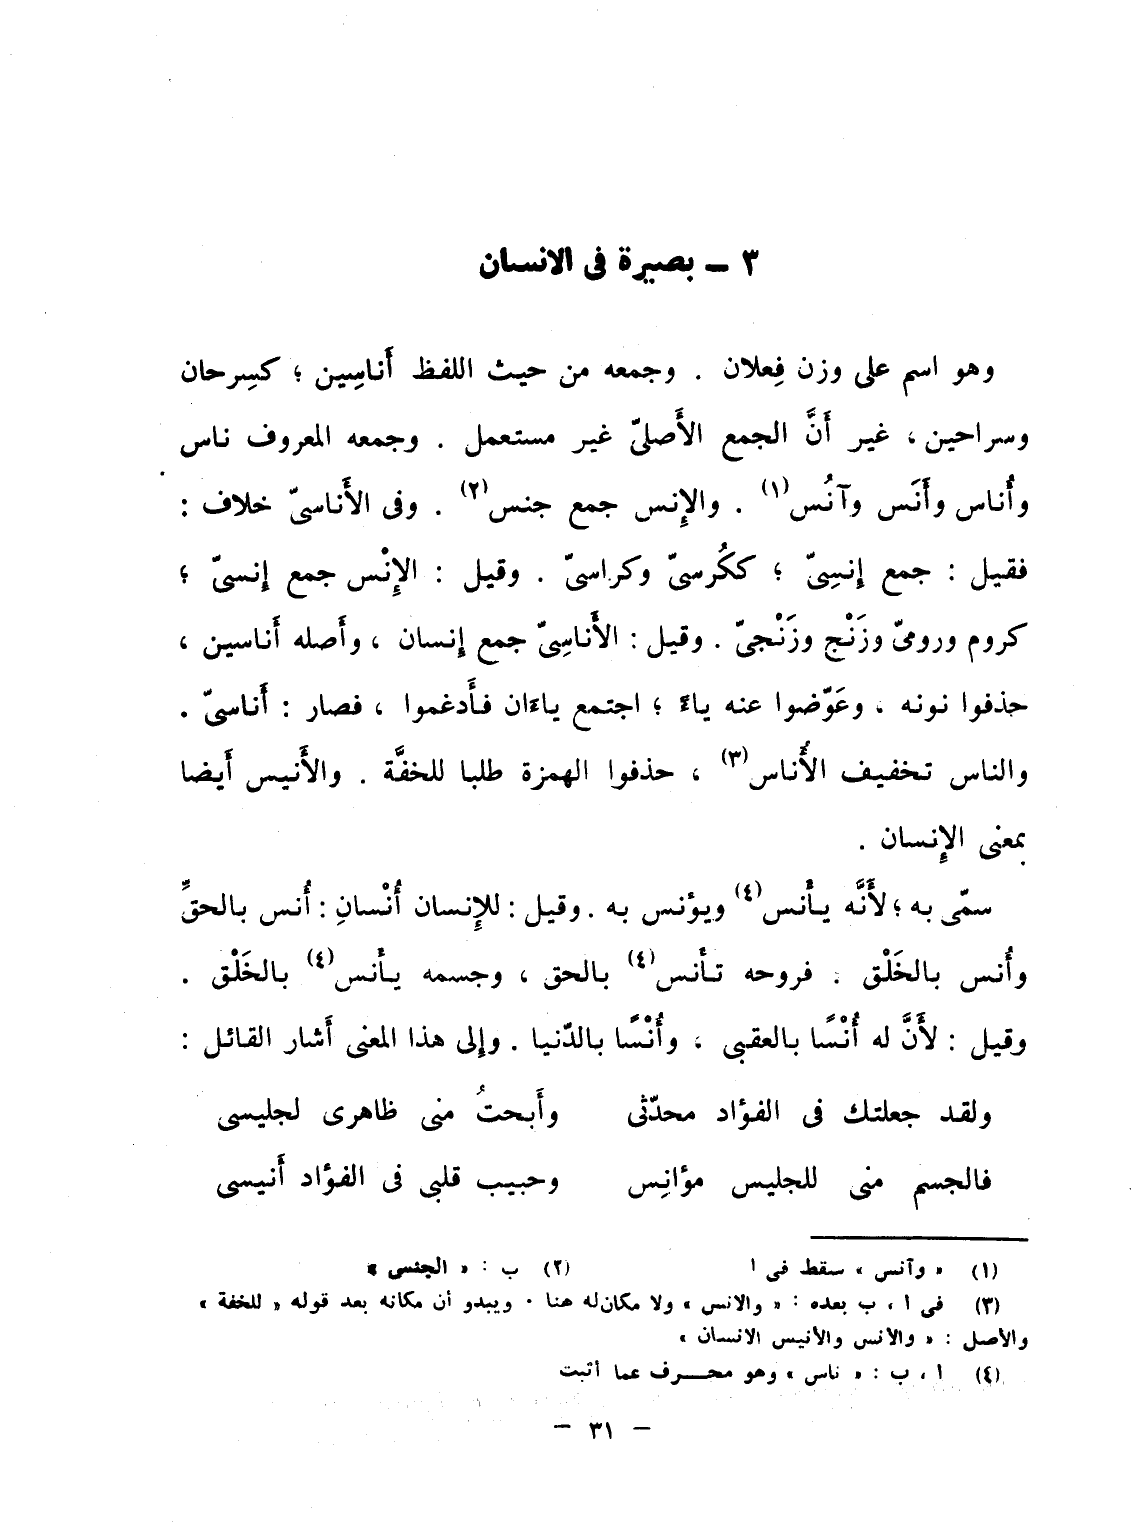 ٣ ـ بصيرة فى الانسان
وهو اسم على وزن فِعلان . وجمعه من حيث اللفظ أَناسِين ؛ كسِرحان
وسراحين ، غير أَنَّ الجمع الأَصلىّ غير مستعمل . وجمعه المعروف ناس
وأُناس وأَنَس وآنُس(١) . والإِنس جمع جنس(٢) . وفى الأَناسىّ خلاف :
فقيل : جمع إِنسِىّ ؛ ككُرسىّ وكراسىّ . وقيل : الإِنْس جمع إِنسىّ ؛
كروم ورومىّ وزَنْج وزَنْجىّ . وقيل : الأَناسِىّ جمع إِنسان ، وأَصله أَناسين ،
حذفوا نونه ، وعَوّضوا عنه ياءً ؛ اجتمع ياءَان فأَدغموا ، فصار : أَناسىّ .
والناس تخفيف الأُناس(٣) ، حذفوا الهمزة طلبا للخفَّة . والأَنيس أَيضا
بمعنى الإِنسان .
سمّى به ؛ لأَنَّه يأْنس(٤) ويؤنس به . وقيل : للإِنسان أُنْسانِ : أُنس بالحقِّ
وأُنس بالخَلْق . فروحه تأنس(٤) بالحق ، وجسمه يأنس(٤) بالخَلْق .
وقيل : لأَنَّ له أُنْسًا بالعقبى ، وأُنْسًا بالدّنيا . وإِلى هذا المعنى أَشار القائل :
ولقد جعلتك فى الفؤاد محدّثى وأَبحتُ منى ظاهرى لجليسى
فالجسم منى للجليس مؤانِس وحبيب قلبى فى الفؤاد أَنيسى
(١) « وآنس » سقط فى ا (٢) ب : « الجنسى »
(٣) فى ا ، ب بعده : « والانس » ولا مكان له هنا . ويبدو أن مكانه بعد قوله « للخفة »
والأصل : « والأنس والأنيس الانسان »
(٤) أ ، ب : « ناس » وهو محـــرف عما أثبت
– ٣١ –